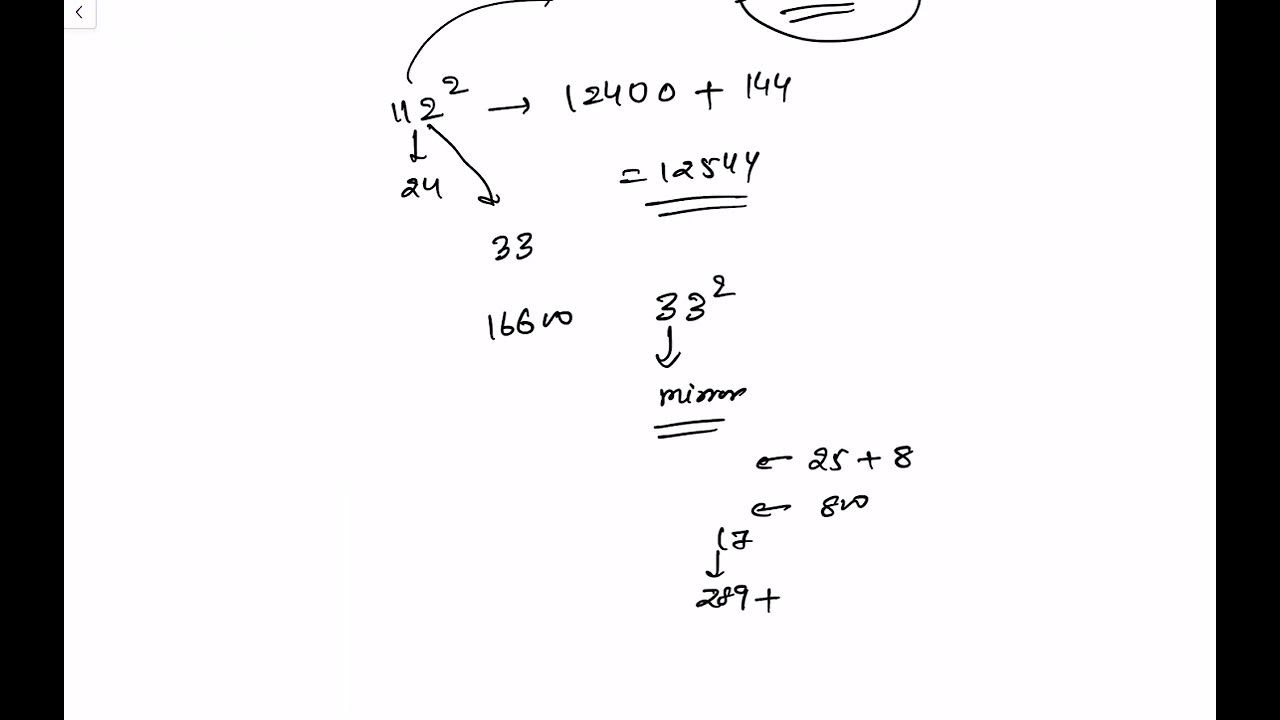 112² → 12400 + 144
↓
24
= 12544
33
16600
33²
↓
mirror
← 25 + 8
← 800
17
↓
289 +